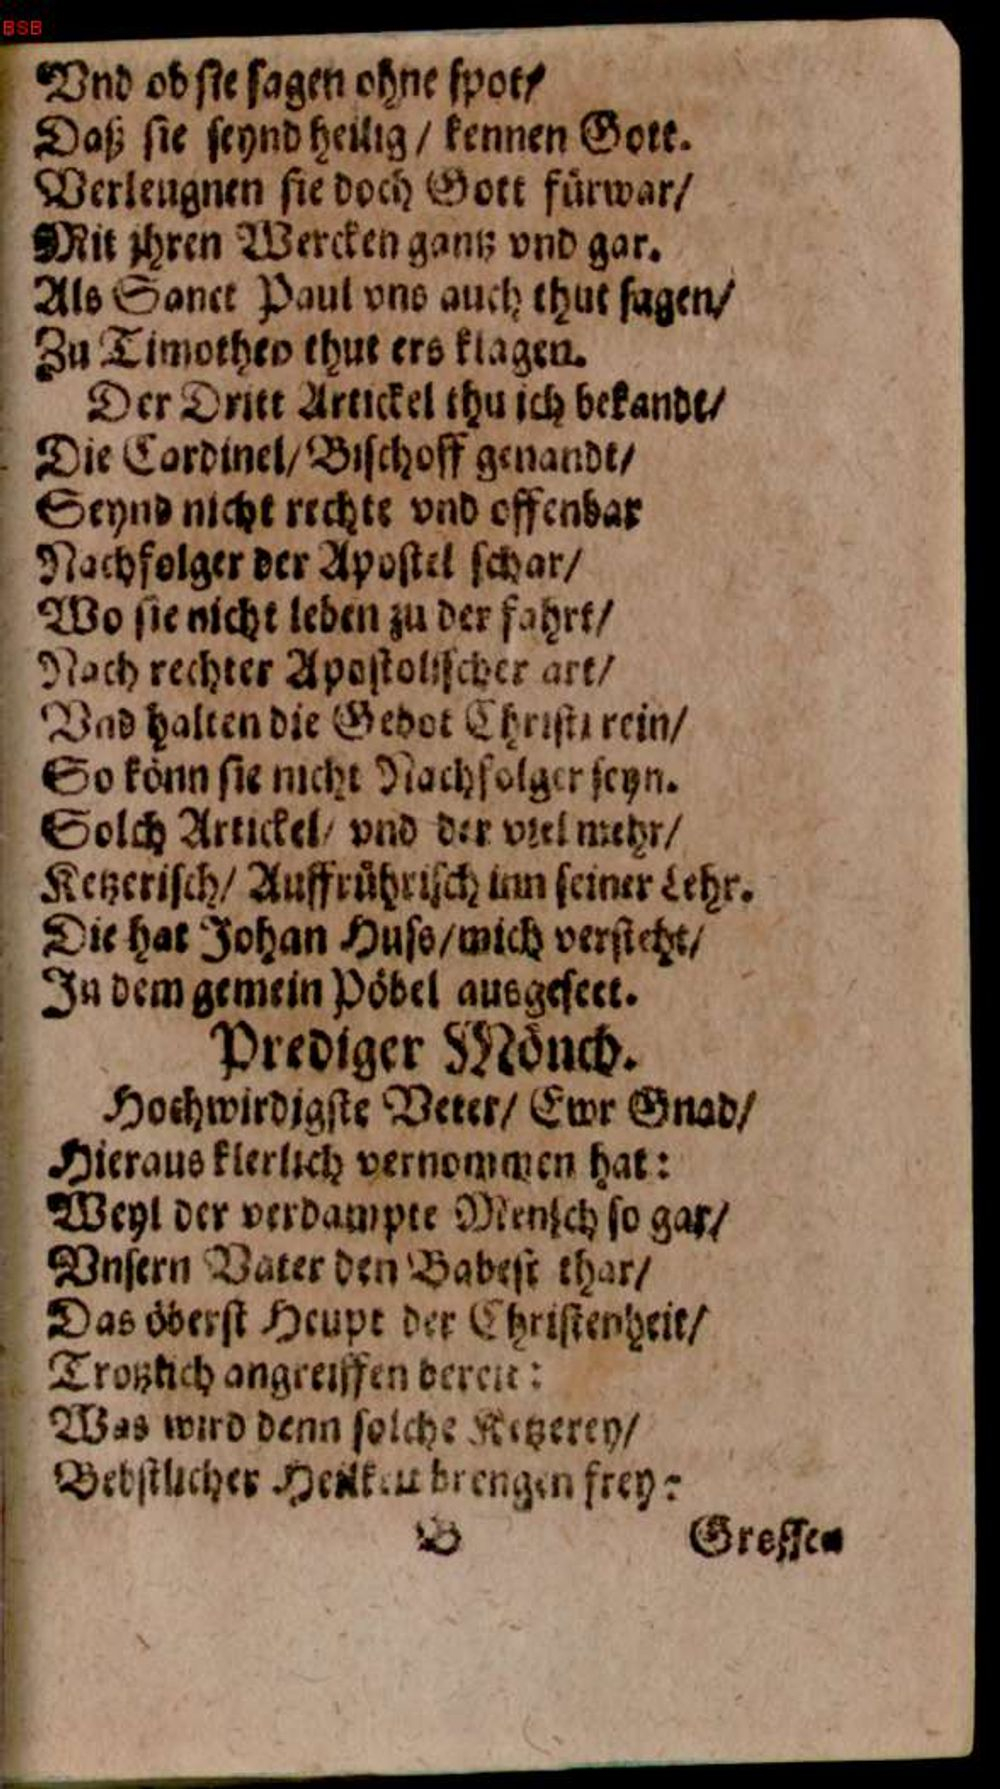 BSB
Vnd ob sie sagen ohne spot/
Daß sie seynd heilig / kennen Gott.
Verleugnen sie doch Gott fürwar/
Mit jhren Wercken gantz vnd gar.
Als Sanct Paul vns auch thut sagen/
Zu Timotheo thut ers klagen.
Der Dritt Artickel thu ich bekandt/
Die Cardinel/ Bischoff genandt/
Seynd nicht rechte vnd offenbar
Nachfolger der Apostel schar/
Wo sie nicht leben zu der fahrt/
Nach rechter Apostolischer art/
Vnd halten die Gebot Christi rein/
So könn sie nicht Nachfolger seyn.
Solch Artickel/ vnd der viel mehr/
Ketzerisch/ Auffrührisch inn seiner Lehr.
Die hat Johan Huss/ mich versteht/
In dem gemein Pöbel ausgeseet.
Prediger Mönch.
Hochwirdigste Veter/ Ewr Gnad/
Hieraus klerlich vernommen hat:
Weyl der verdampte Mensch so gar/
Vnsern Vater den Babest thar/
Das öberst Heupt der Christenheit/
Trotzlich angreiffen bereit:
Was wird denn solche Ketzerey/
Bebstlicher Heilkeit brengen frey?
B Grossen